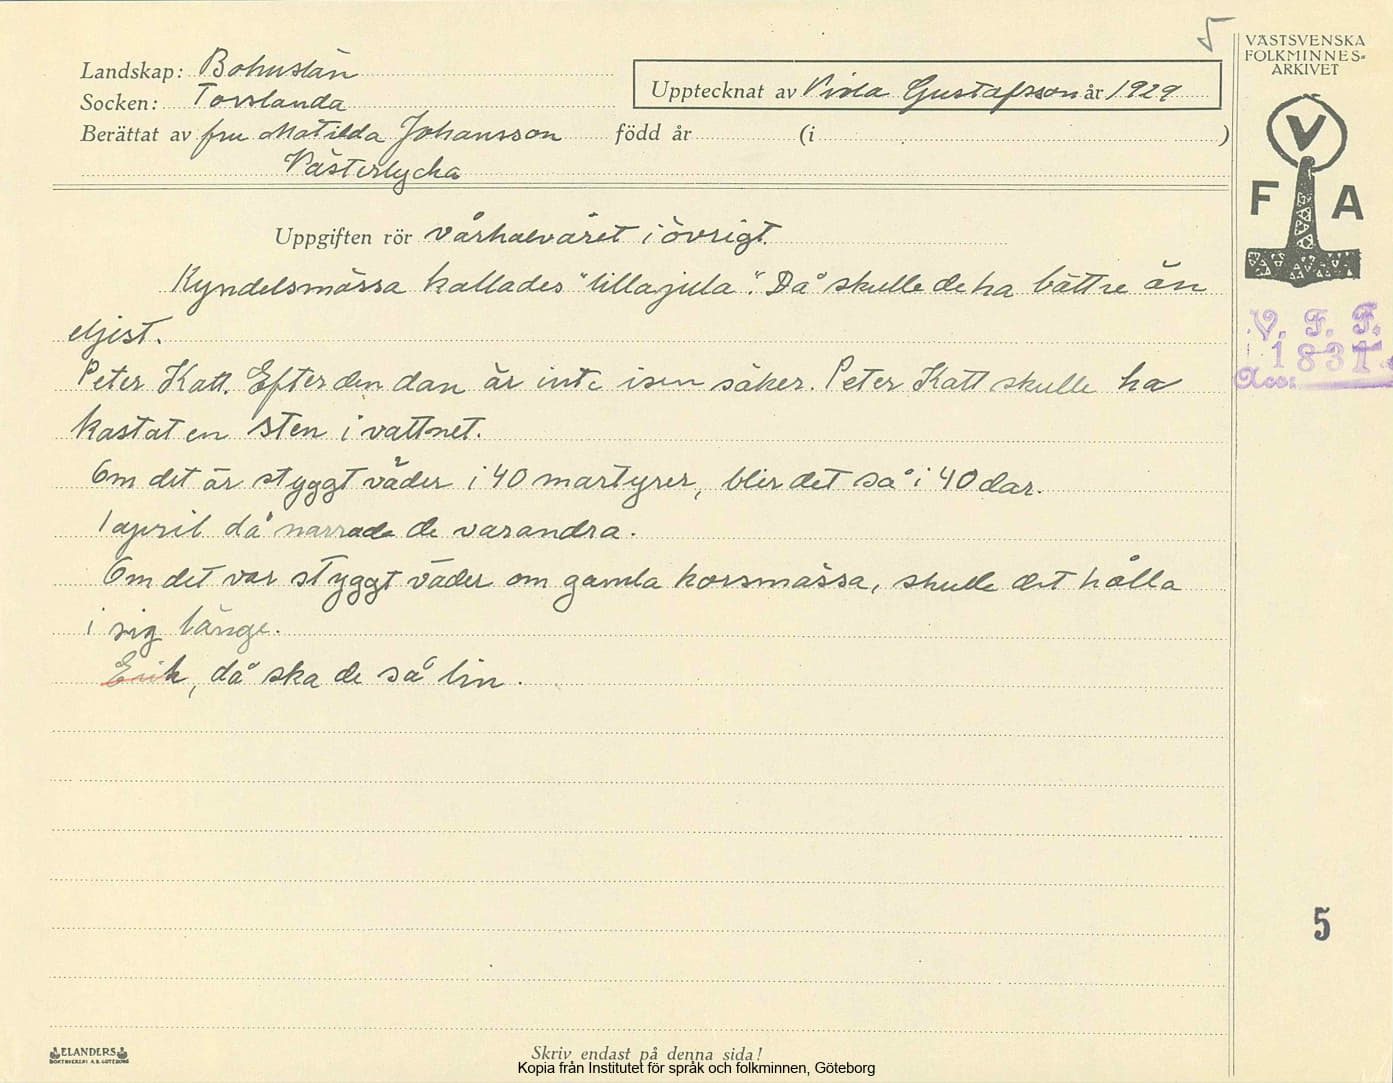 5
VÄSTSVENSKA
FOLKMINNES-
ARKIVET
Landskap: Bohuslän
Socken: Torslanda
Upptecknat av Viola Gustafsson år 1929
Berättat av fru Matilda Johansson född år (i )
Västerlycka
V
F A
Uppgiften rör vårhalvåret i övrigt.
Kyndelsmässa kallades "lillajula". Då skulle de ha bättre än
eljest.
Peter Katt. Efter den dan är inte isen säker. Peter Katt skulle ha
kastat en sten i vattnet.
Om det är styggt väder i 40 martyrer, blir det så i 40 dar.
1 april då narrade de varandra.
Om det var styggt väder om gamla korsmässa, skulle det hålla
i sig länge.
Erik, då ska de så lin.
V. F. F.
1831
Acc:
5
ELANDERS
BOKTRYCKERI A.B. GÖTEBORG
Skriv endast på denna sida!
Kopia från Institutet för språk och folkminnen, Göteborg